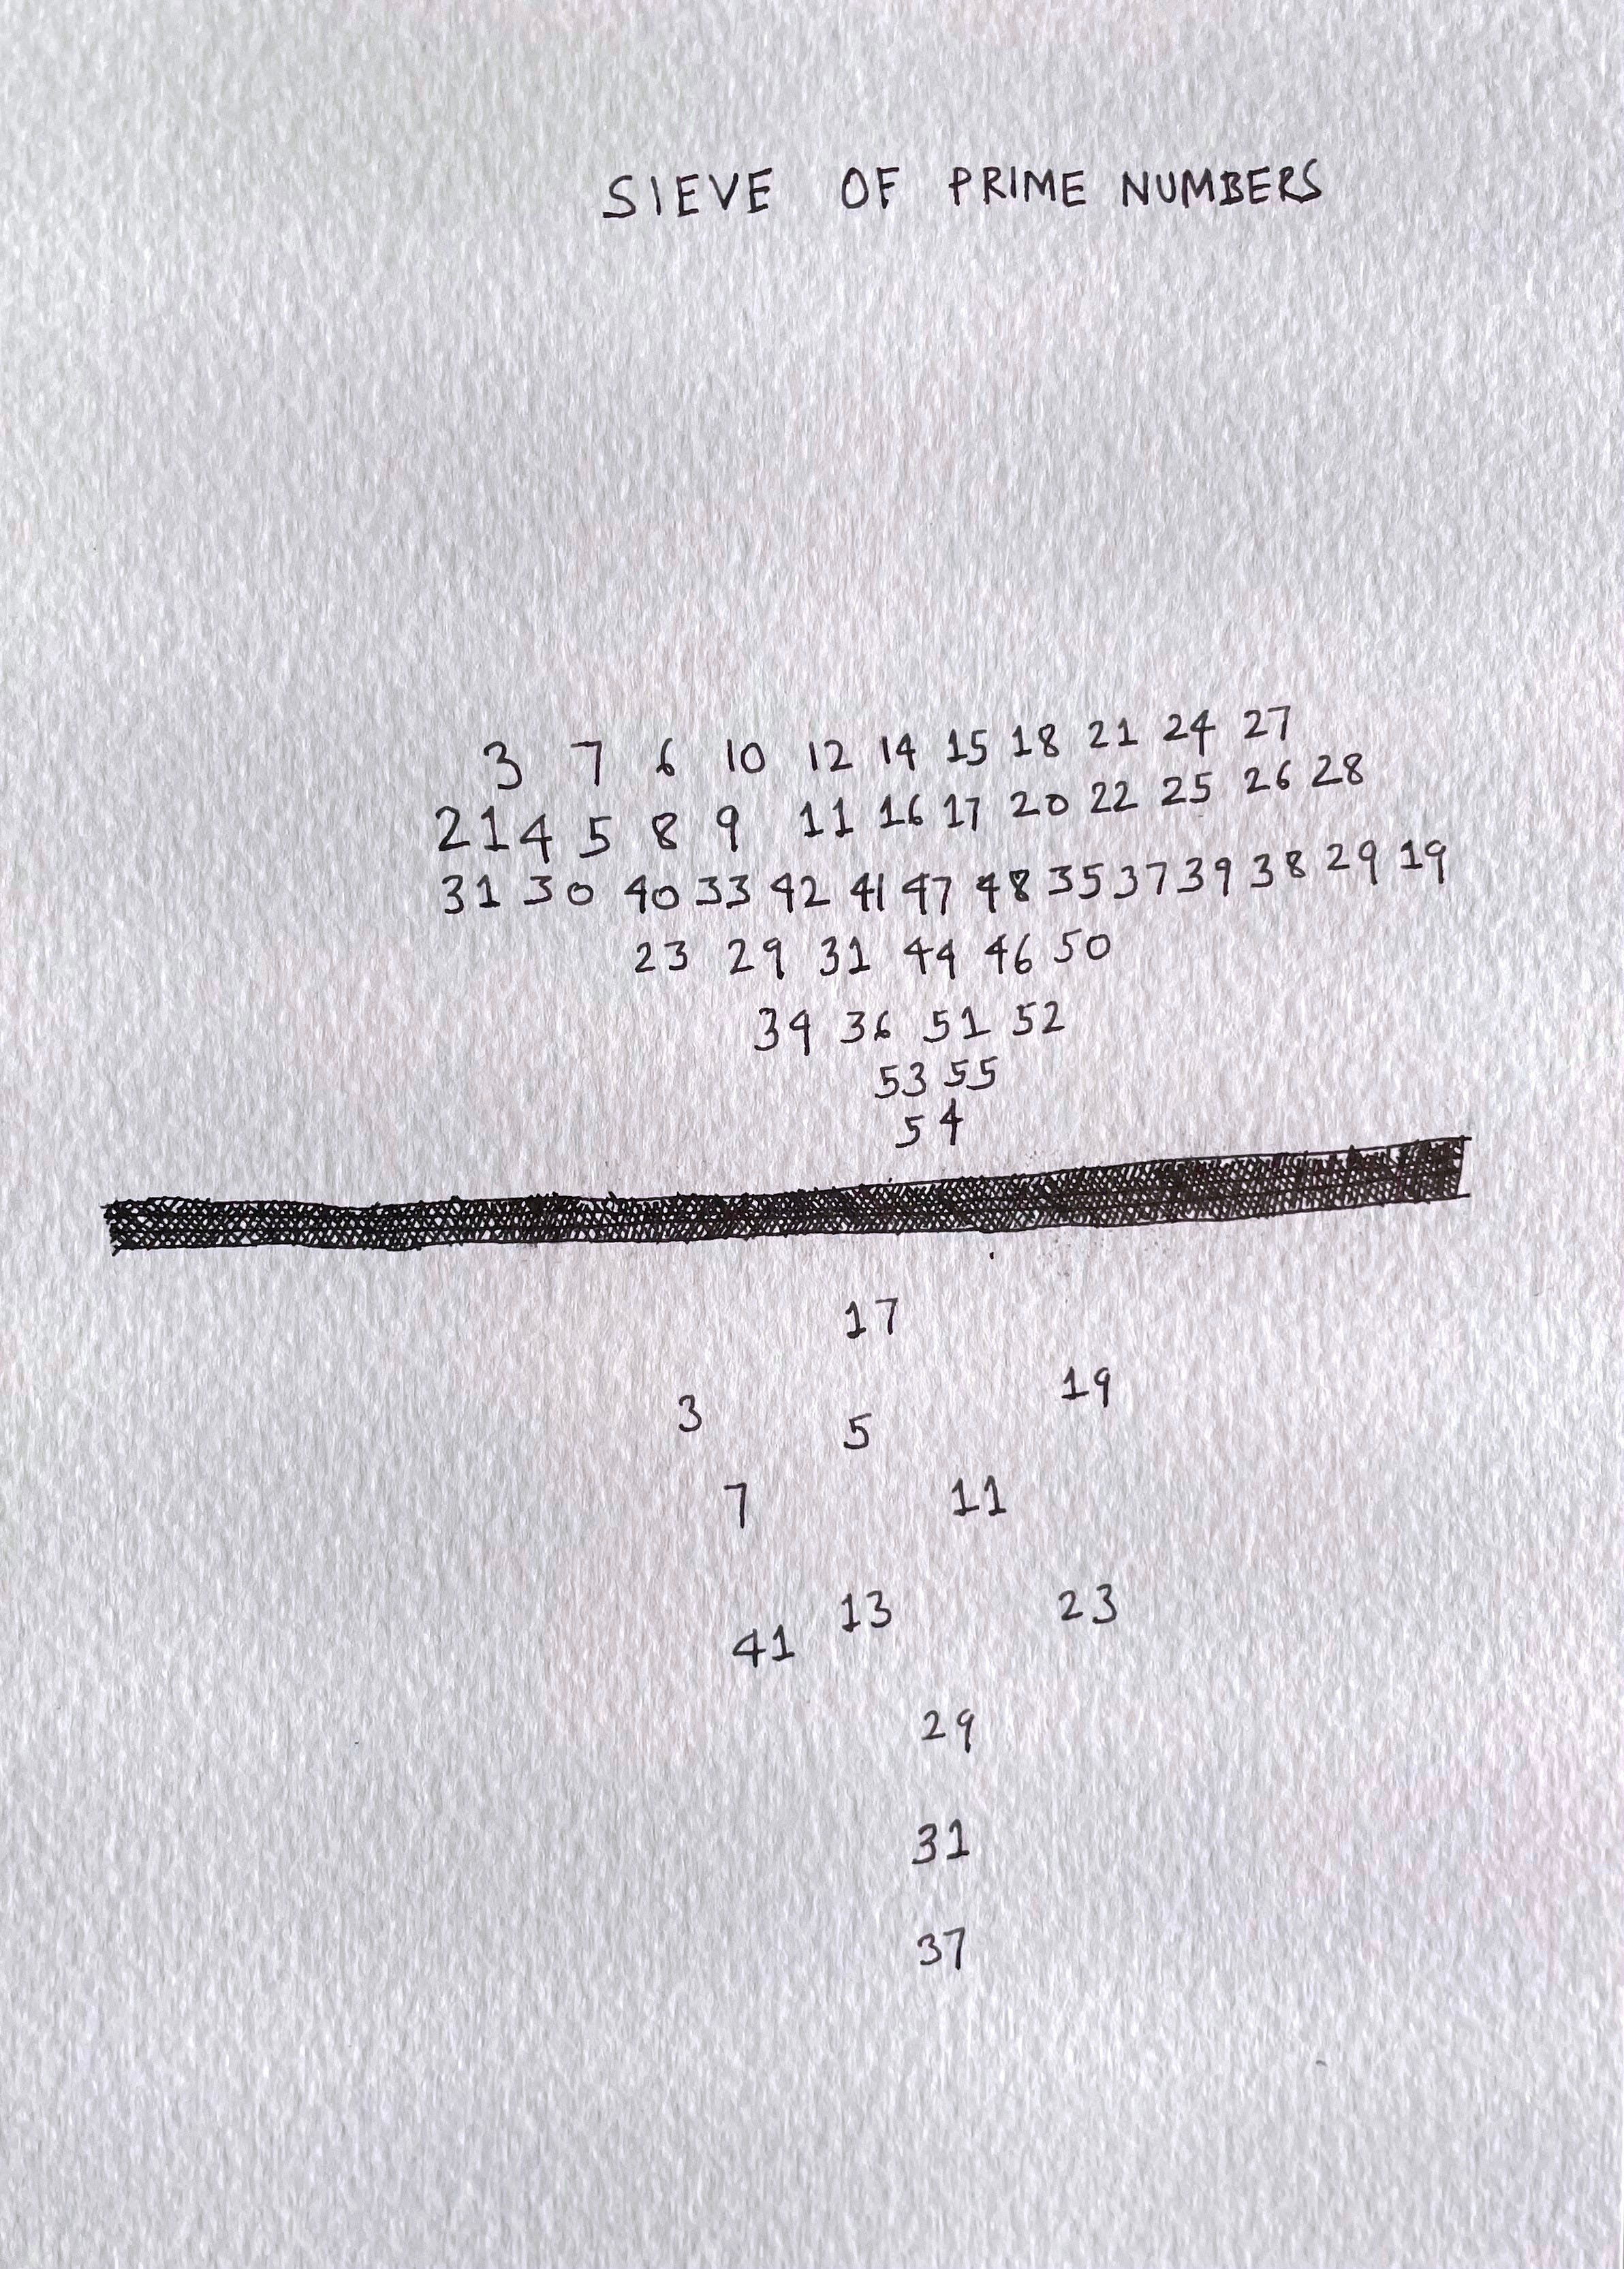 SIEVE OF PRIME NUMBERS
3 7 6 10 12 14 15 18 21 24 27
2 1 4 5 8 9 11 16 17 20 22 25 26 28
31 30 40 33 42 41 47 48 35 37 39 38 29 19
23 29 31 44 46 50
34 36 51 52
53 55
54
17
3 5 19
7 11
41 13 23
29
31
37